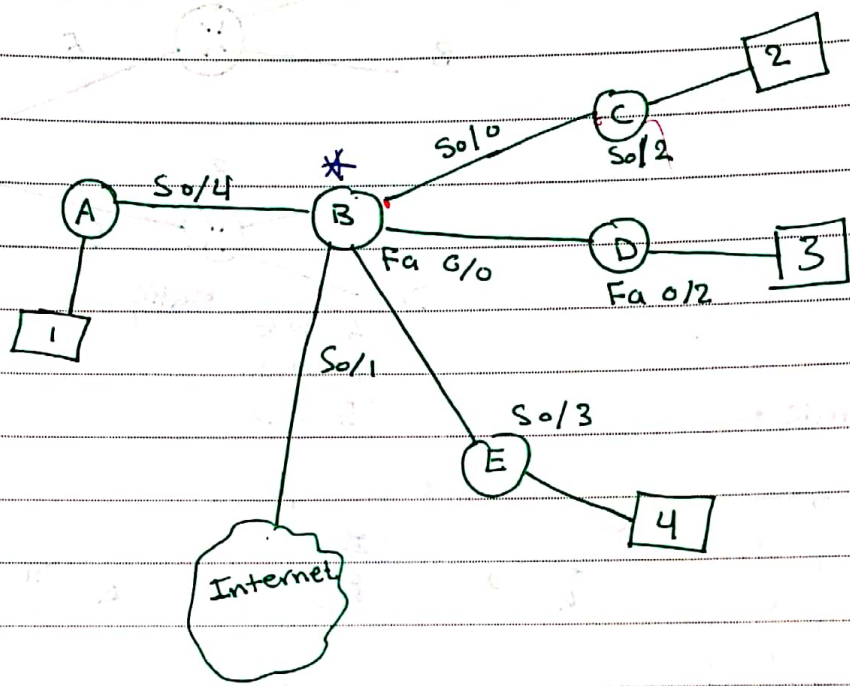 2
C
So/0
So/2
*
So/4
A
B
D
3
Fa 0/0
Fa 0/2
1
So/1
So/3
E
4
Internet